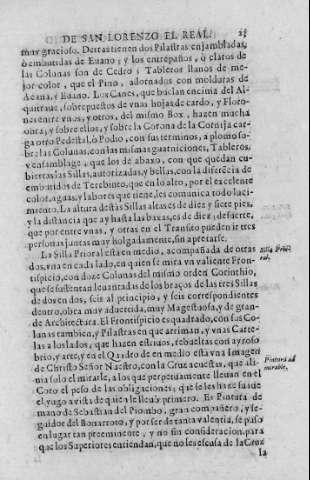 DE SAN LORENZO EL REAL.
muy gracioso. Detras tienen dos Pilastras enjambladas,
ò embutidas de Euano; y los entrepaños, ò claros de
las Colunas son de Cedro; Tableros llanos de me-
jor color, que el Pino, adornados con molduras de
Acana, y Euano. Los Canes, que buelan encima del Al-
quitraue, sobrepuestos de vnas hojas de cardo, y Floro-
nes entre vnos, y otros, del mismo Box, hazen mucha
obra, y sobre ellos, y sobre la Corona de la Cornija car-
ga otro Pedestal, ò Podio, con sus terminos, a plomo so-
bre las Colunas, con las mismas guarniciones, Tableros,
y ensamblage, que los de abaxo, con que quedan cu-
biertas las Sillas, autorizadas, y bellas, con la diferẽcia de
embutidos de Terebinto, que en lo alto, por el excelente
color, aguas, y labores que tiene, les comunica todo luci-
miento. La altura destas Sillas altas es de diez y siete pies,
y la distancia que ay hasta las baxas, es de diez; de suerte,
que por entre vnas, y otras en el Transito pueden ir tres
personas juntas muy holgadamente, sin apretarse.
La Silla Prioral està en medio, acompañada de otras
dos, vna en cada lado, en quien se mira vn valiente Fron-
tispicio, con doze Colunas del mismo orden Corinthio,
que se sustentan leuantados de los braços de las tres Sillas
de dos en dos, seis al principio, y seis correspondientes
dentro, obra muy aduertida, muy Magestuosa, y de gran-
de Architectura. El Frontispicio es quadrado, con sus Co-
lunas tambien, y Pilastras en que arriman, y vnas Carte-
las a los lados, que hazen estriuos, rebueltas con ayroso
brio, y arte, y en el Quadro de en medio està vna Imagen
de Christo Señor Nuestro, con la Cruz acuestas, que ali-
uia solo el mirarle, a los que perpetuamente lleuan en el
Coro el peso de las obligaciones; que se les haze suaue
el yugo a vista de quien le lleuò primero. Es Pintura de
mano de Sebastian del Piombo, gran compañero, y se-
guidor del Bonarroto, y por ser de tanta valentia, se puso
en lugar tan preeminente, y no sin consideracion, para
que los Superiores entiendan, que no les escusa de la Cruz
la
Silla Prio-
ral.
Pintura ad
mirable.